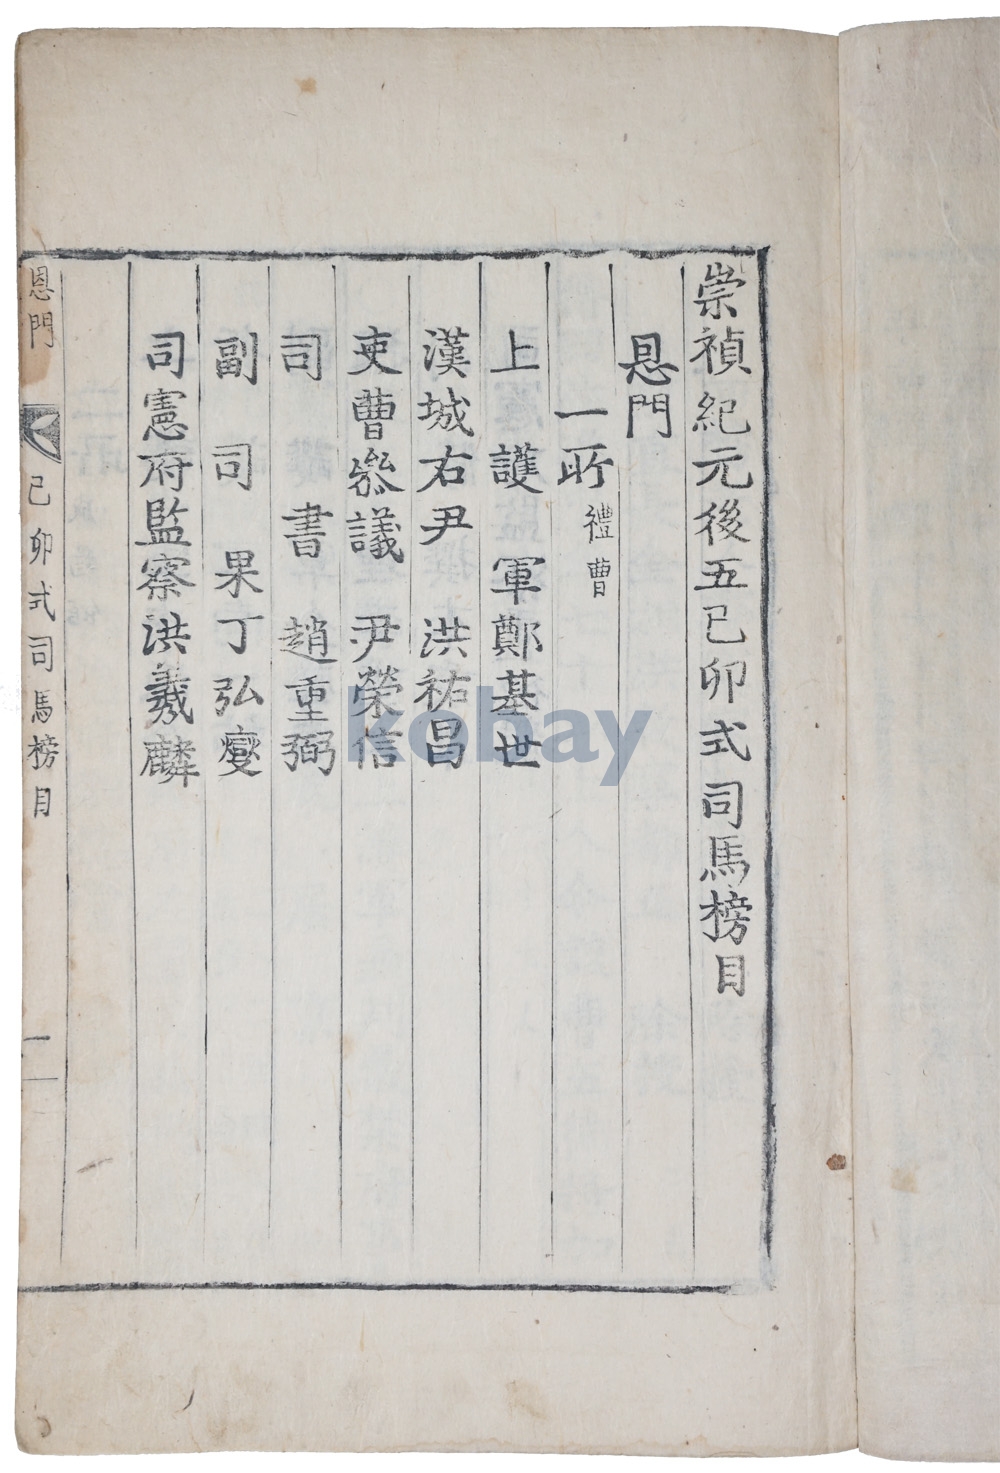 崇禎紀元後五己卯式司馬榜目
恩門
一所 禮曹
上護軍鄭基世
漢城右尹洪祐昌
吏曹參議尹榮信
司書趙重弼
副司果丁弘燮
司憲府監察洪羲麟
恩門 己卯式司馬榜目 一
kobay